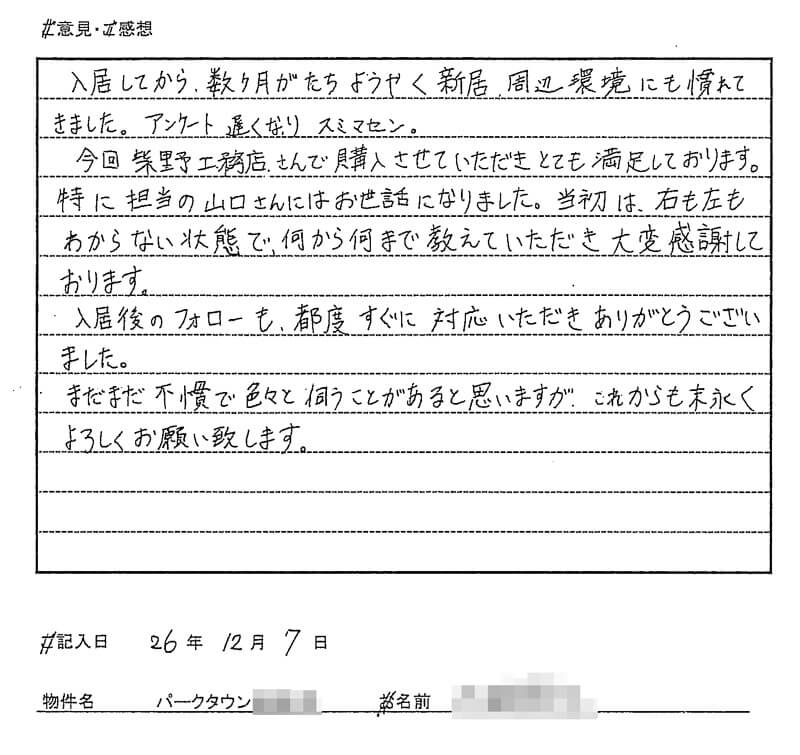 意見・感想
入居してから、数ヶ月がたちようやく新居、周辺環境にも慣れて
きました。アンケート遅くなりスミマセン。
今回柴野工務店さんで購入させていただきとても満足しております。
特に担当の山口さんにはお世話になりました。当初は、右も左も
わからない状態で、何から何まで教えていただき大変感謝して
おります。
入居後のフォローも、都度すぐに対応いただきありがとうござい
ました。
まだまだ不慣で色々と伺うことがあると思いますが、これからも末永く
よろしくお願い致します。
記入日 26年 12月 7日
物件名 パークタウン 名前